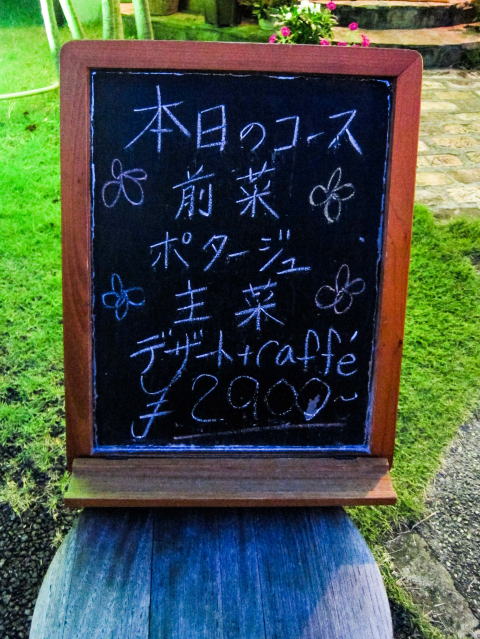 本日のコース
前菜
ポタージュ
主菜
デザート+caffé
¥2900~